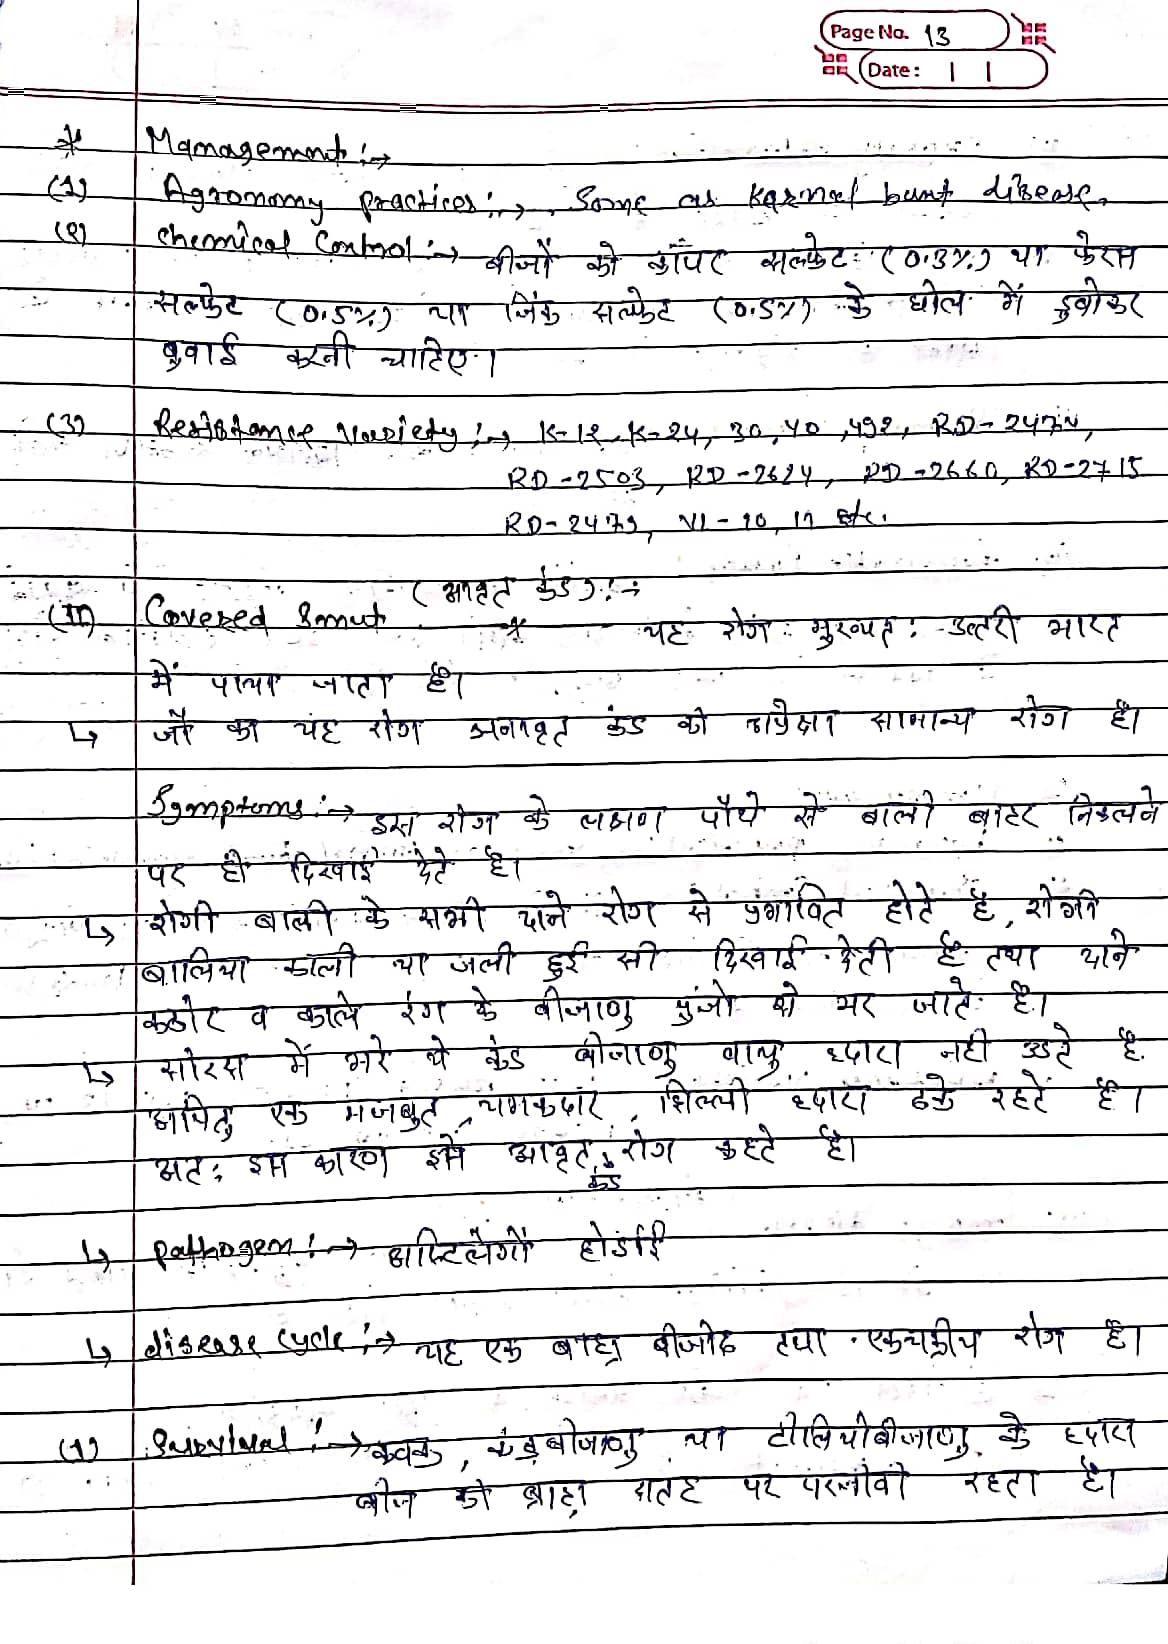 Page No. 13
Date: | |
* Management :→
(1) Agronomy practices :→ Same as Karnal bunt disease.
(2) Chemical Control :→ बीजों को कॉपर सल्फेट (0.3%) या फेरस
सल्फेट (0.5%) या जिंक सल्फेट (0.5%) के घोल में डुबोकर
बुवाई करनी चाहिए।
(3) Resistance Variety :→ K-12, K-24, 30, 40, 492, RD-2474,
RD-2503, RD-2624, RD-2660, RD-2715
RD-2479, VL-10, 11 etc.
(आवृत कंड) :→
(II) Covered Smut * यह रोग मुख्यतः उत्तरी भारत
में पाया जाता है।
↳ जौ का यह रोग अनावृत कंड की अपेक्षा सामान्य रोग है।
Symptoms :→ इस रोग के लक्षण पौधे से बाली बाहर निकलने
पर ही दिखाई देते है।
↳ रोगी बाली के सभी दाने रोग से प्रभावित होते है, रोगी
बालिया काली या जली हुई सी दिखाई देती है तथा दाने
कठोर व काले रंग के बीजाणु पुंजो से भर जाते है।
↳ सोरस में भरे ये कंड बीजाणु वायु द्वारा नही उडते है
अपितु एक मजबुत, चमकदार, झिल्ली द्वारा ढके रहते है।
अत: इस कारण इसे आवृत रोग कहते है।
कंड
↳ pathogen :→ अस्टिलेगों होर्डाई
↳ disease cycle :→ यह एक बाह्य बीजोढ तथा एकचक्रीय रोग है।
(1) Survival :→ कवक, कंडबीजाणु या टीलियोबीजाणु के द्वारा
बीज की बाह्य सतह पर परजीवी रहता है।